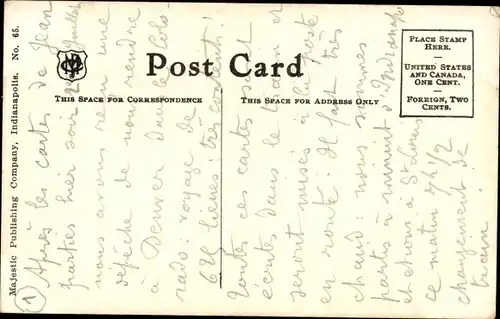 Majestic Publishing Company, Indianapolis. No. 65.
Post Card
THIS SPACE FOR CORRESPONDENCE
THIS SPACE FOR ADDRESS ONLY
PLACE STAMP
HERE.
UNITED STATES
AND CANADA,
ONE CENT.
FOREIGN, TWO
CENTS.
1
Après les cartes de Jean
parties hier soir 2 juillet
nous avons reçu une
dépêche de nous rendre
à Denver dans le Colo-
rado: voyage de
628 lieues: très content!
toutes ces cartes
écrites dans le train et
seront mises à la poste
en route. Il fait très
chaud: nous sommes
partis à minuit d'Indianap
et étions à St Louis
ce matin 7h 1/2
changement de
train.